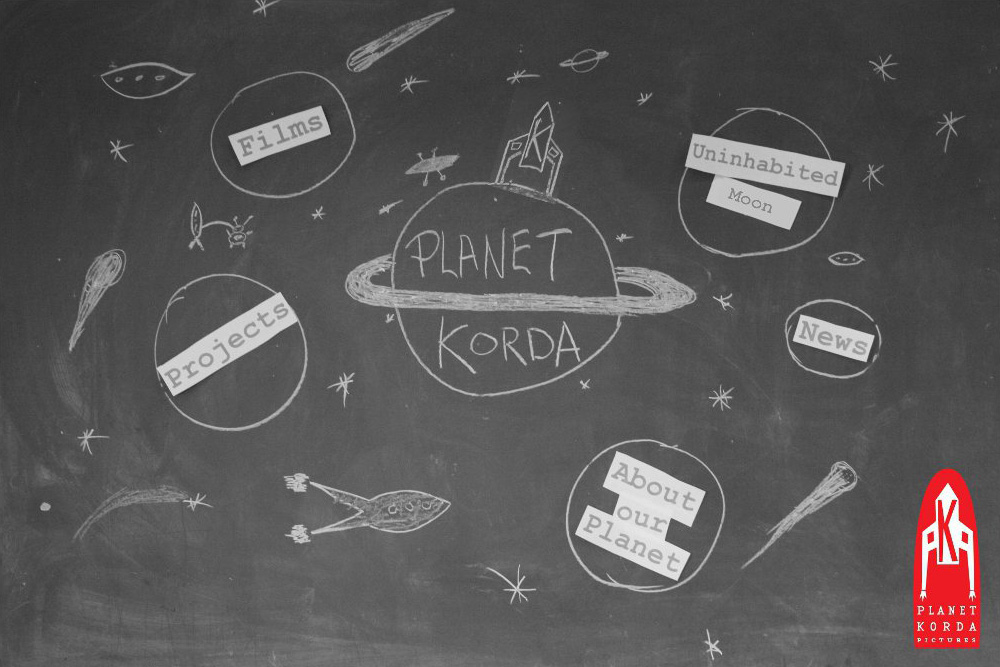 Films
K
Uninhabited
Moon
PLANET
KORDA
Projects
News
About
our
Planet
K
PLANET
KORDA
PICTURES